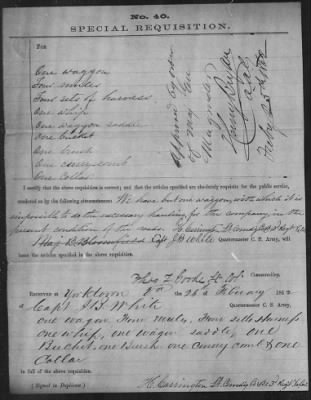 No. 40.
SPECIAL REQUISITION.
For
One waggon
Four mules
Four sets of harness
One whip
One waggon saddle
One bucket
One brush
One currycomb
One Collar
Approved by order
of Maj Gen
Magruder
Henry Bryan
I certify that the above requisition is correct; and that the articles specified are absolutely requisite for the public service,
rendered so by the following circumstances: We have but one waggon, with which it is
impossible to do the necessary hauling for the company, in the
present condition of the roads. H. Carrington Lt.
Quartermaster C. S. Army,
will issue the articles specified in the above requisition.
Commanding.
Received at Yorktown Va. the 26th of February 1862
of Capt. White Quartermaster C. S. Army,
one wagon Four mules, Four setts harness
one whip, one wagon saddle, one
Bucket, one Brush one curry comb & one
Collar
in full of the above requisition.
(Signed in Duplicate.) H. Carrington Lt.